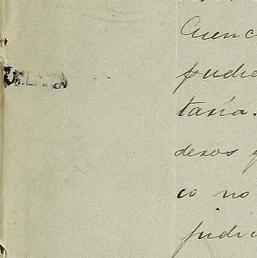 Cuenc
pudie
taria.
desos
co no
judic